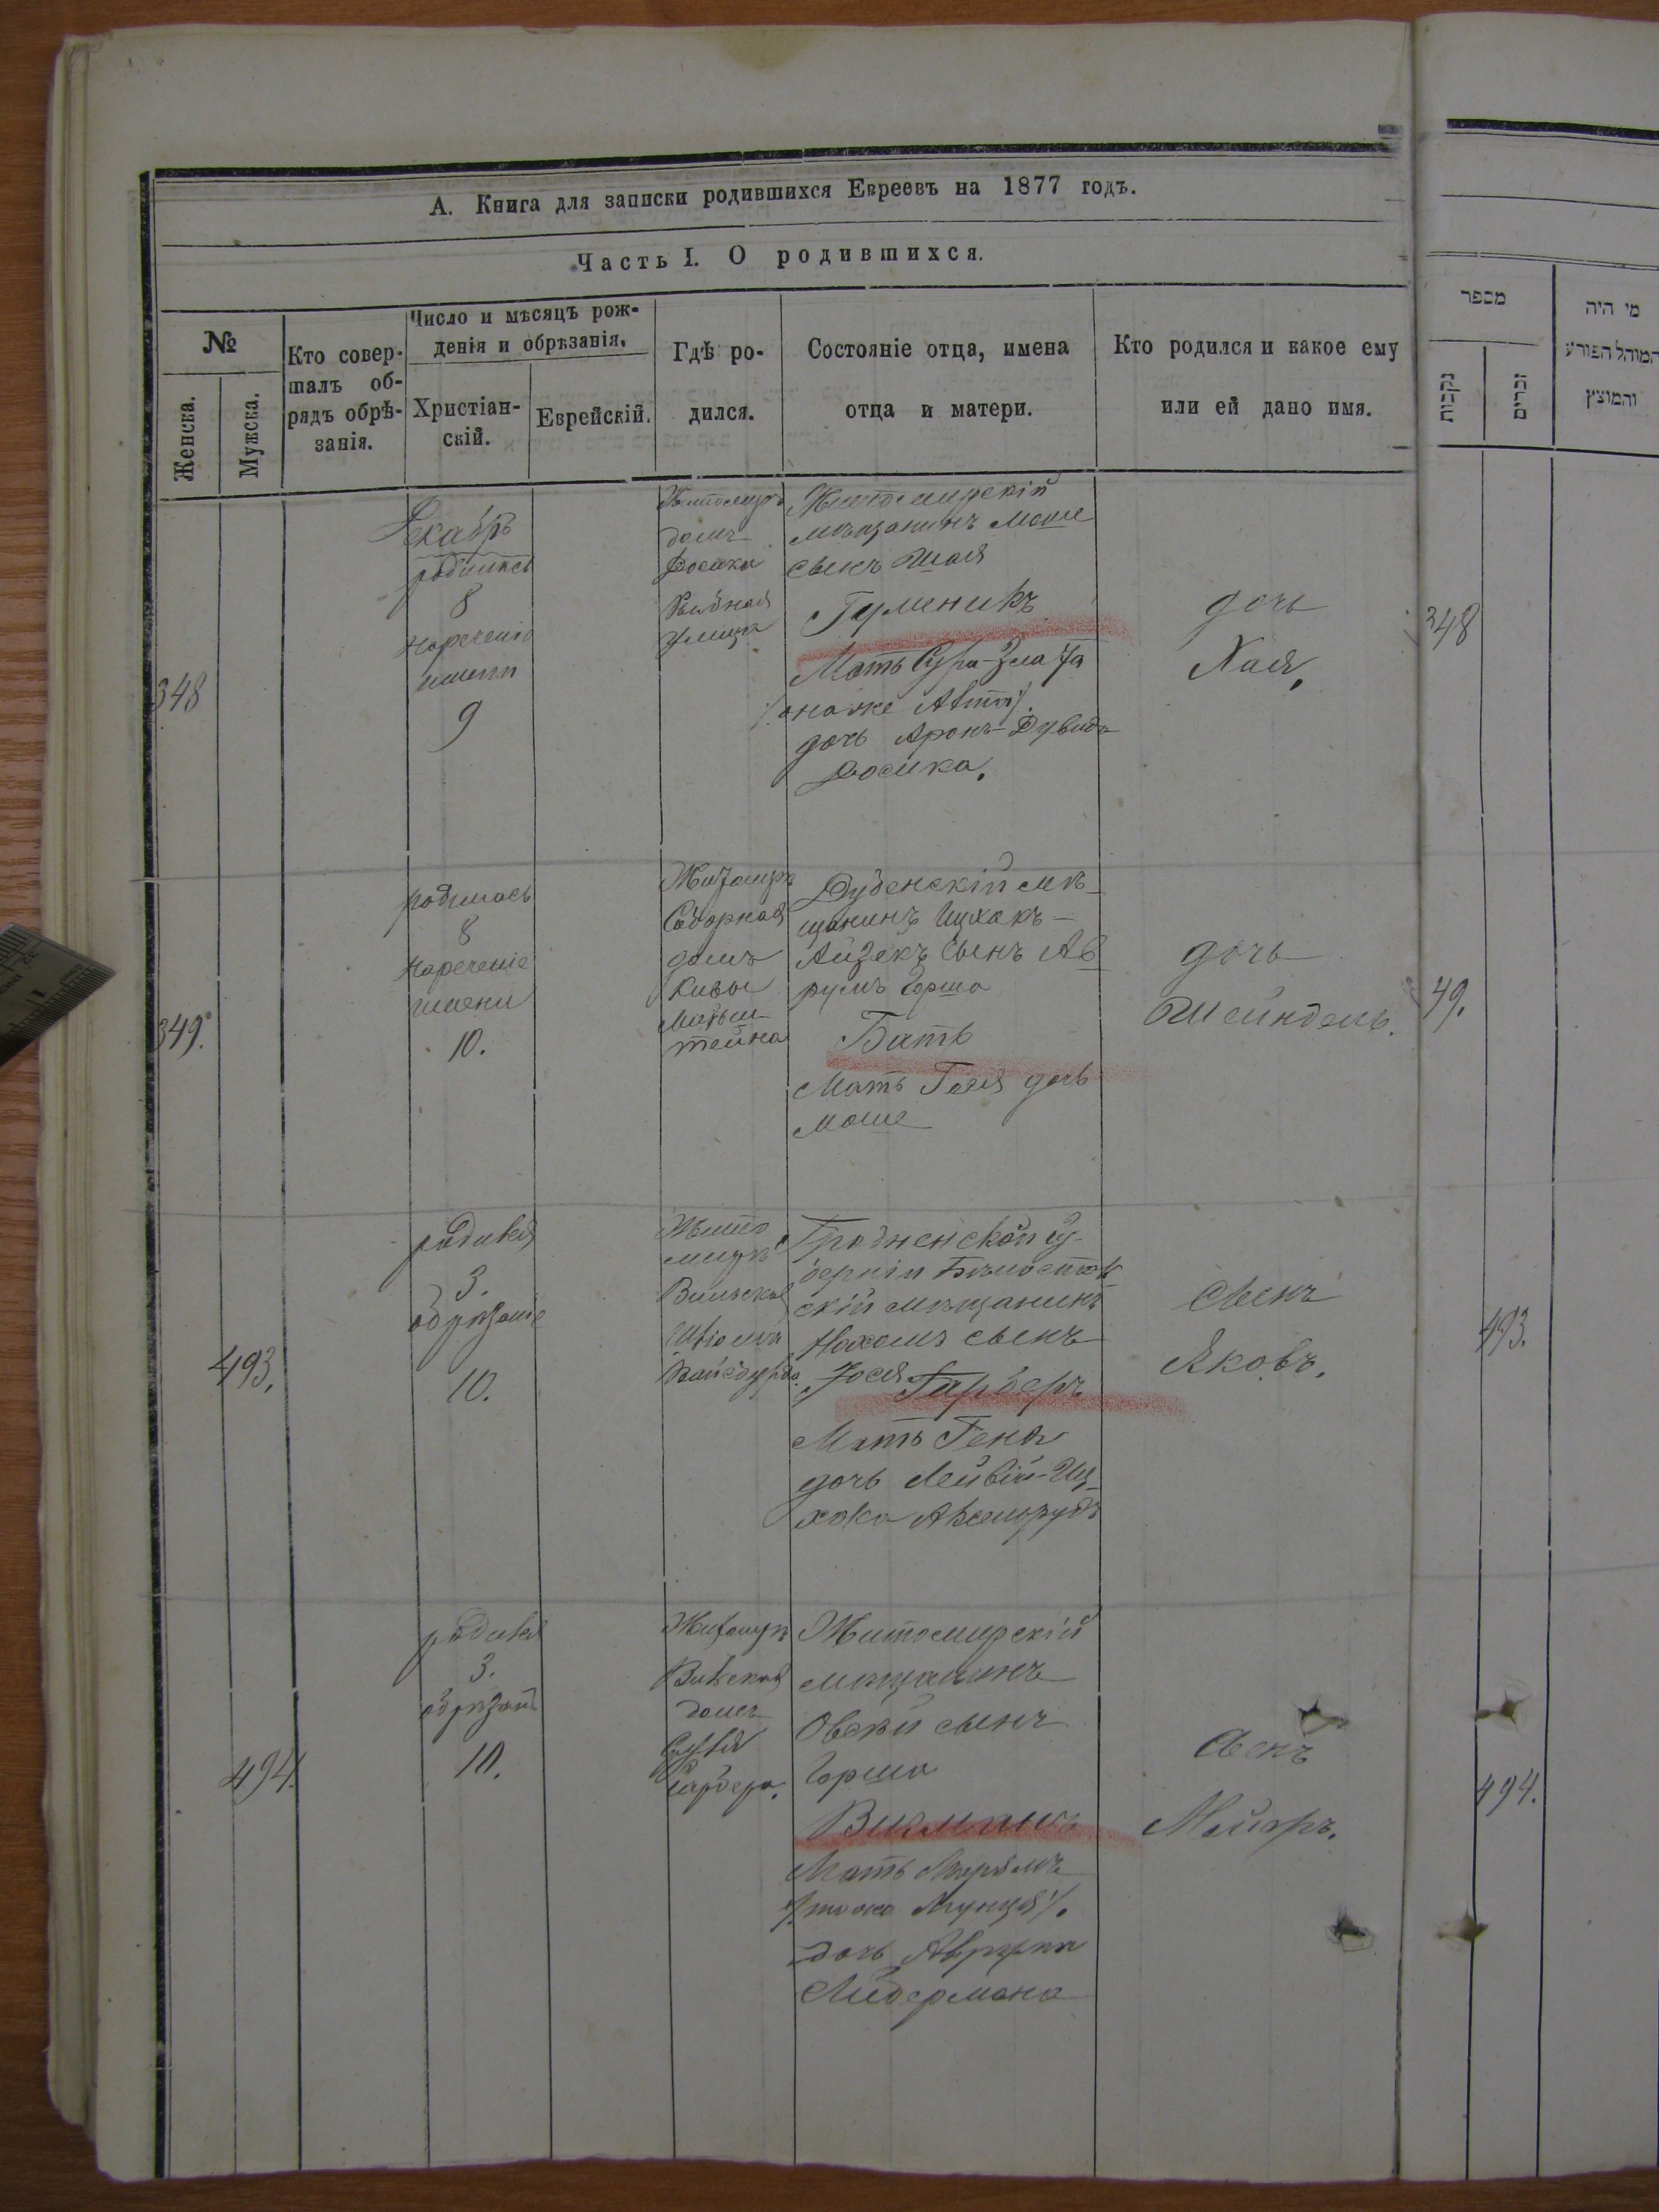 А. Книга для записки родившихся Евреевъ на 1877 годъ.
Часть I. О родившихся.
№
Женска.
Мужска.
Кто совер-
шалъ об-
рядъ обрѣ-
занія.
Число и мѣсяцъ рож-
денія и обрѣзанія.
Христіан-
скій.
Еврейскій.
Гдѣ ро-
дился.
Состояніе отца, имена
отца и матери.
Кто родился и какое ему
или ей дано имя.
מספר
נקבות
זכרים
מי היה
המוהל הפורע
והמוצץ
348
Декабрь
родилась
8
нареченіе
имени
9
Житомиръ
домъ
Досика
Рыбная
улица
Житомирскій
мѣщанинъ Моше
сынъ Шая
Гуменикъ
Мать Сура-Злата
дочь Аронъ-Дувида
Досика.
дочь
Хая,
348
349.
родилась
8
нареченіе
имени
10.
Житомиръ
Соборная
домъ
Кивы
тейна
Дубенскій мѣ-
щанинъ Ицхокъ-
Айзекъ сынъ Ав
румъ Герша
Бать
Мать Гося дочь
Моше
дочь
Шейндель.
49.
493.
родился
3.
обрѣзаніе
10.
Жито
миръ
Вильская
Гродненской гу-
берніи Бѣлосток
скій мѣщанинъ
Нахомъ сынъ
Іося Гарберъ
Мать Геня
дочь Лейви-Иц
хока
сынъ
Яковъ.
493.
494.
родился
3.
обрѣзаніе
10.
Житомиръ
Вильская
домъ
Гарбера.
Житомирскій
мѣщанинъ
Овсей сынъ
Герша
Мать
дочь Аврума
Лидермана
сынъ
Мейеръ.
494.